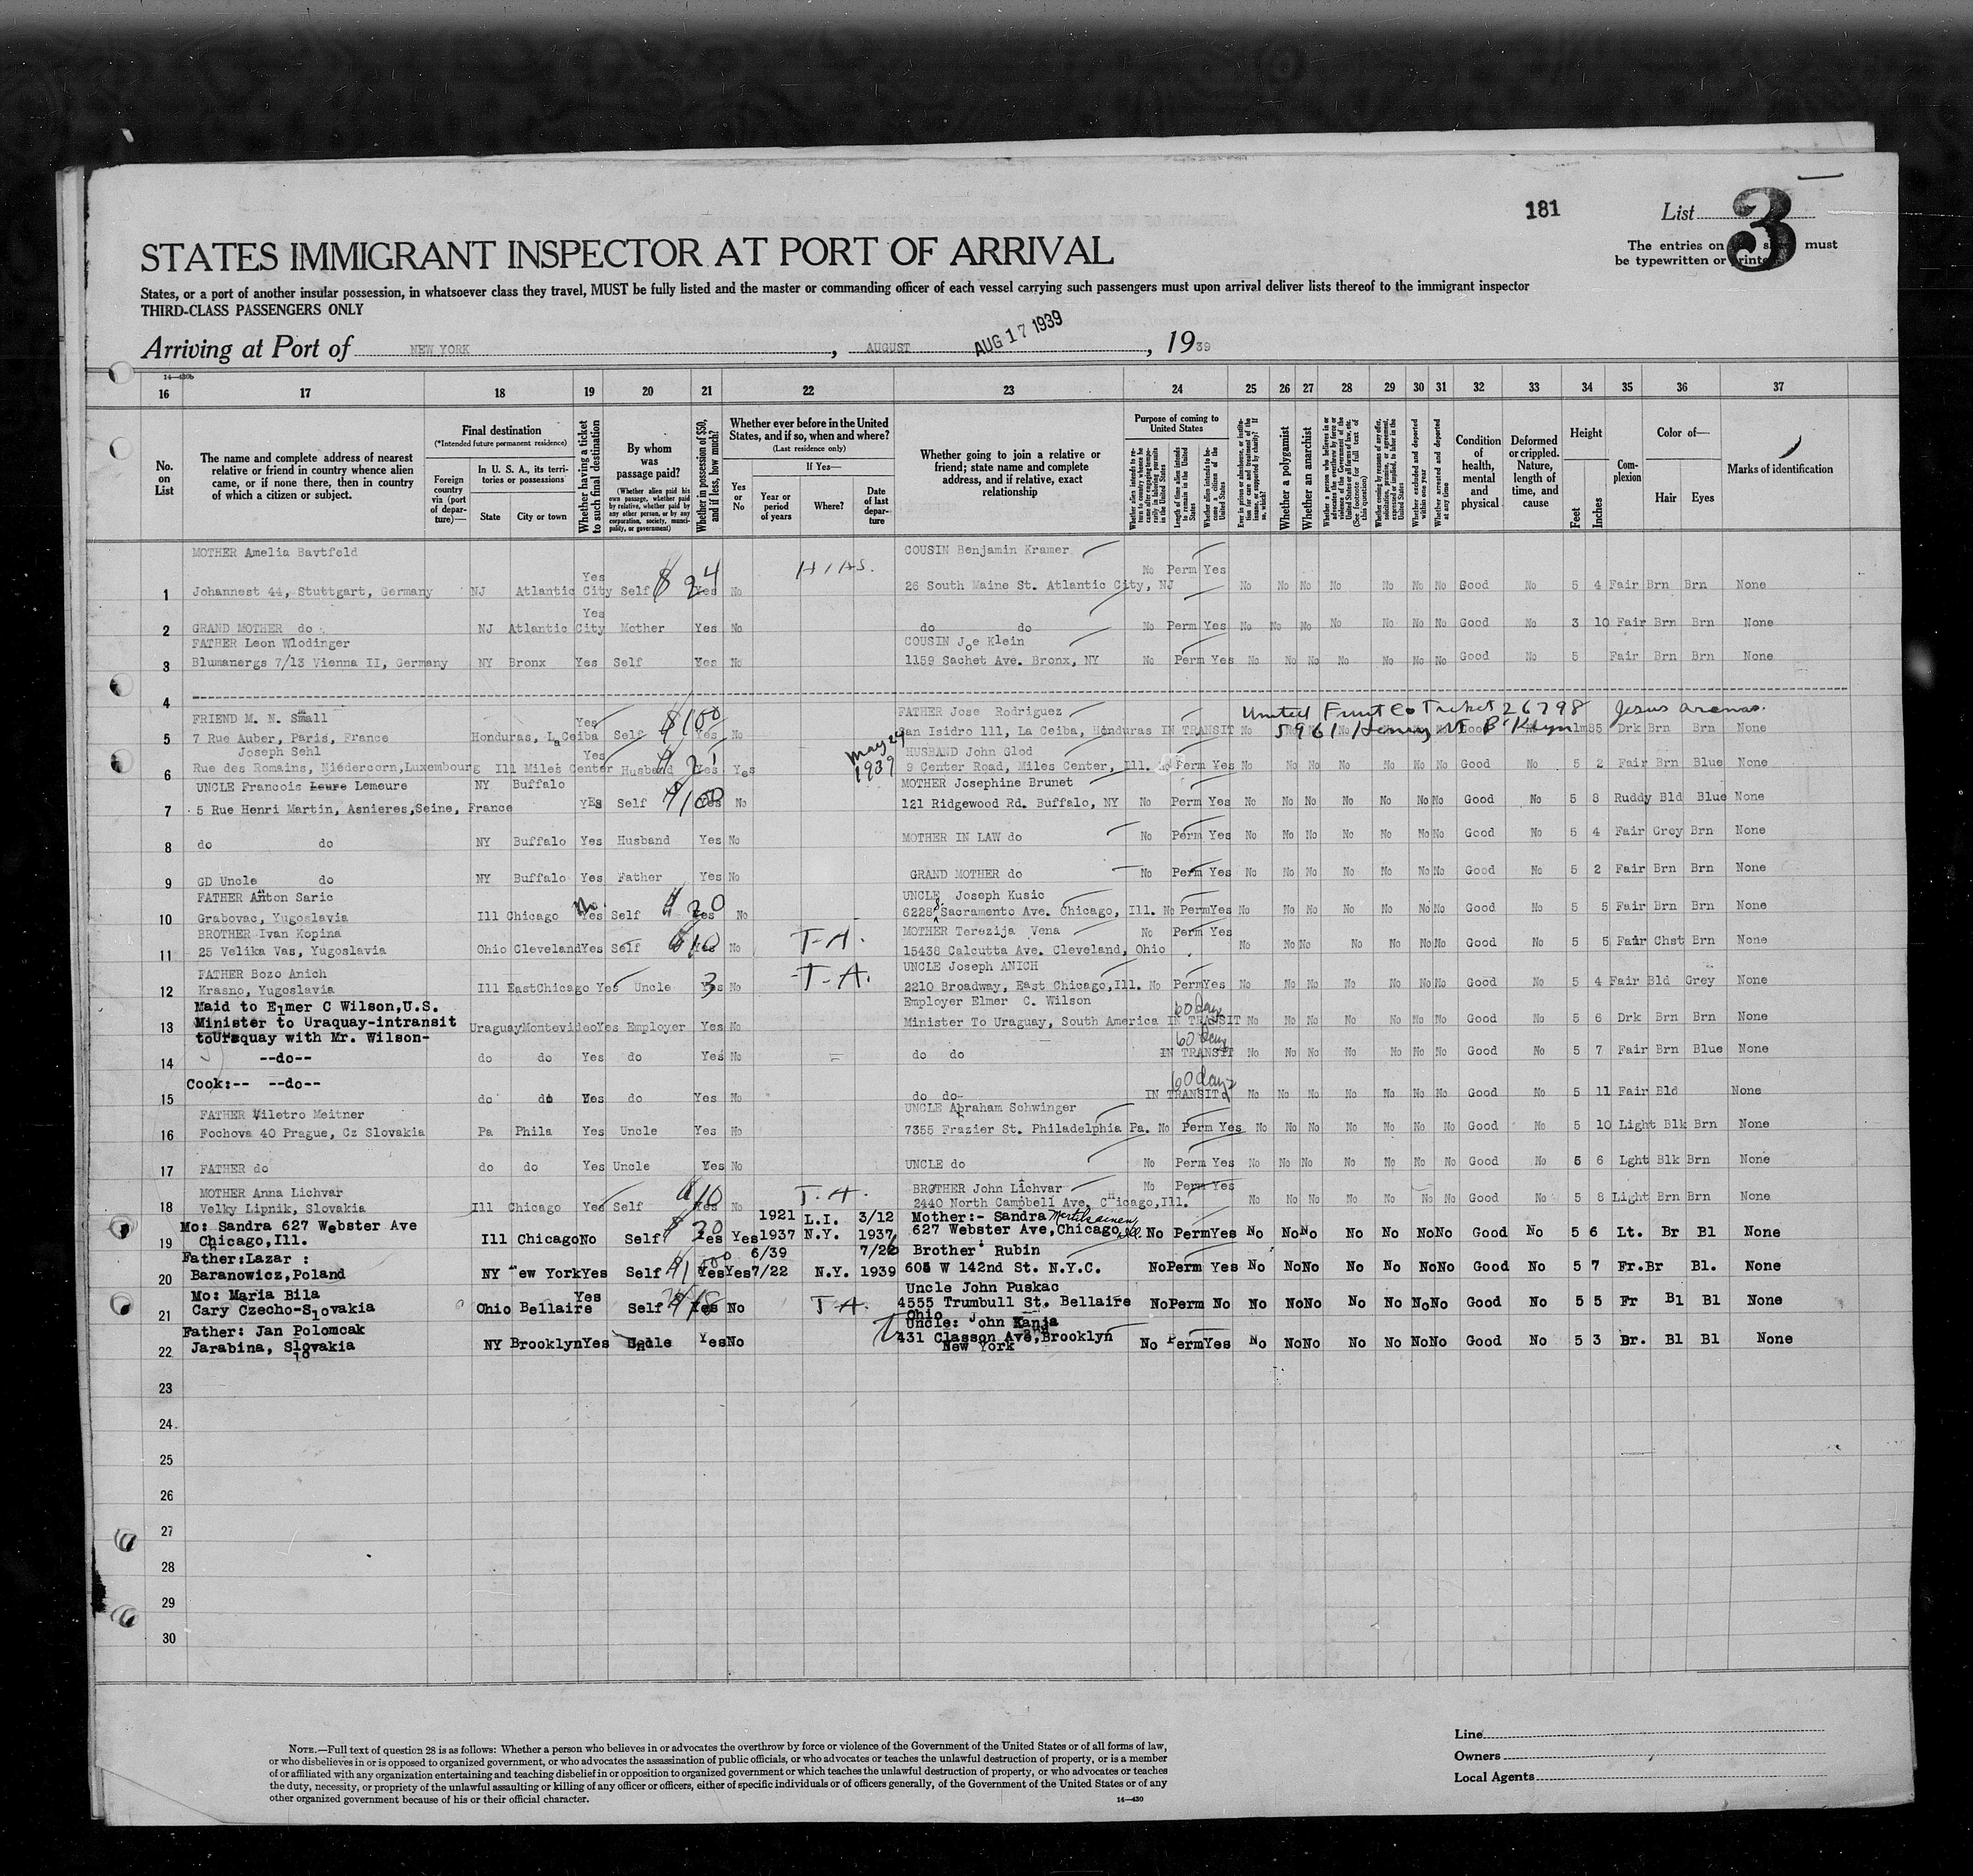 181
List 3
The entries on must
be typewritten or printed
STATES IMMIGRANT INSPECTOR AT PORT OF ARRIVAL
States, or a port of another insular possession, in whatsoever class they travel, MUST be fully listed and the master or commanding officer of each vessel carrying such passengers must upon arrival deliver lists thereof to the immigrant inspector
THIRD-CLASS PASSENGERS ONLY
Arriving at Port of NEW YORK, AUGUST AUG 17 1939, 1939
14—430b
16 17 18 19 20 21 22 23 24 25 26 27 28 29 30 31 32 33 34 35 36 37
No. on List
The name and complete address of nearest relative or friend in country whence alien came, or if none there, then in country of which a citizen or subject.
Final destination
(*Intended future permanent residence)
Foreign country via (port of departure)—
In U. S. A., its territories or possessions
State City or town
Whether having a ticket to such final destination
By whom was passage paid?
(Whether alien paid his own passage, whether paid by relative, whether paid by any other person, or by any corporation, society, municipality, or government)
Whether in possession of $50, and if less, how much?
Whether ever before in the United States, and if so, when and where?
(Last residence only)
If Yes—
Yes or No
Year or period of years
Where?
Date of last departure
Whether going to join a relative or friend; state name and complete address, and if relative, exact relationship
Purpose of coming to United States
Whether alien intends to return to country whence he came after engaging temporarily in laboring pursuits in the United States
Length of time alien intends to remain in the United States
Whether alien intends to become a citizen of the United States
Ever in prison or almshouse, or institution for care and treatment of the insane, or supported by charity? If so, which?
Whether a polygamist
Whether an anarchist
Whether a person who believes in or advocates the overthrow by force or violence of the Government of the United States or all forms of law, etc. (See footnote for full text of this question)
Whether coming by reason of any offer, solicitation, promise, or agreement, expressed or implied, to labor in the United States
Whether excluded and deported within one year
Whether arrested and deported at any time
Condition of health, mental and physical
Deformed or crippled. Nature, length of time, and cause
Height
Feet Inches
Complexion
Color of—
Hair Eyes
Marks of identification
MOTHER Amelia Bavtfeld COUSIN Benjamin Kramer
1 Johannest 44, Stuttgart, Germany NJ Atlantic City Yes Self $ 24 Yes No HIAS. 26 South Maine St. Atlantic City, NJ No Perm Yes No No No No No No No Good No 5 4 Fair Brn Brn None
2 GRAND MOTHER do NJ Atlantic City Yes Mother Yes No do do No Perm Yes No No No No No No No Good No 3 10 Fair Brn Brn None
FATHER Leon Wlodinger COUSIN Joe Klein
3 Blumanergs 7/13 Vienna II, Germany NY Bronx Yes Self Yes No 1159 Sachet Ave. Bronx, NY No Perm Yes No No No No No No No Good No 5 Fair Brn Brn None
4
FRIEND M. N. Small FATHER Jose Rodriguez United Fruit Co Ticket 26798 Jesus Arenas.
5 7 Rue Auber, Paris, France Honduras, La Ceiba Yes Self $100 Yes No San Isidro 111, La Ceiba, Honduras IN TRANSIT No 5961 Henry St B'klyn 1m85 Drk Brn Brn None
Joseph Sehl HUSBAND John Glod
6 Rue des Romains, Niedercorn, Luxembourg Ill Miles Center Yes Husband $ 21 Yes Yes May 24 1939 9 Center Road, Miles Center, Ill. Perm Yes No No No No No No No Good No 5 2 Fair Brn Blue None
UNCLE Francois Leure Lemeure NY Buffalo MOTHER Josephine Brunet
7 5 Rue Henri Martin, Asnieres, Seine, France Yes Self $100 Yes No 121 Ridgewood Rd. Buffalo, NY No Perm Yes No No No No No No No Good No 5 8 Ruddy Bld Blue None
8 do do NY Buffalo Yes Husband Yes No MOTHER IN LAW do No Perm Yes No No No No No No No Good No 5 4 Fair Grey Brn None
9 GD Uncle do NY Buffalo Yes Father Yes No GRAND MOTHER do No Perm Yes No No No No No No No Good No 5 2 Fair Brn Brn None
FATHER Anton Saric UNCLE Joseph Kusic
10 Grabovac, Yugoslavia Ill Chicago No. Yes Self $ 20 Yes No 6228 S. Sacramento Ave. Chicago, Ill. No Perm Yes No No No No No No No Good No 5 5 Fair Brn Brn None
BROTHER Ivan Kopina MOTHER Terezija Vena
11 25 Velika Vas, Yugoslavia Ohio Cleveland Yes Self $10 Yes No T-A. 15438 Calcutta Ave. Cleveland, Ohio No Perm Yes No No No No No No No Good No 5 5 Fair Chst Brn None
FATHER Bozo Anich UNCLE Joseph ANICH
12 Krasno, Yugoslavia Ill East Chicago Yes Uncle 3 Yes No T-A. 2210 Broadway, East Chicago, Ill. No Perm Yes No No No No No No No Good No 5 4 Fair Bld Grey None
Maid to Elmer C Wilson, U.S. Employer Elmer C. Wilson
13 Minister to Uraquay-intransit Uraguay Montevideo Yes Employer Yes No Minister To Uraguay, South America 60 days IN TRANSIT No No No No No No No Good No 5 6 Drk Brn Brn None
to Uraquay with Mr. Wilson-
14 --do-- do do Yes do Yes No do do 60 days IN TRANSIT No No No No No No No Good No 5 7 Fair Brn Blue None
15 Cook:-- --do-- do do Yes do Yes No do do 60 days IN TRANSIT No No No No No No No Good No 5 11 Fair Bld None
FATHER Viletro Meitner UNCLE Abraham Schwinger
16 Fochova 40 Prague, Cz Slovakia Pa Phila Yes Uncle Yes No 7355 Frazier St. Philadelphia Pa. No Perm Yes No No No No No No No Good No 5 10 Light Blk Brn None
17 FATHER do do do Yes Uncle Yes No UNCLE do No Perm Yes No No No No No No No Good No 5 6 Lght Blk Brn None
MOTHER Anna Lichvar BROTHER John Lichvar
18 Velky Lipnik, Slovakia Ill Chicago Yes Self $10 Yes No T.A. 2440 North Campbell Ave, Chicago, Ill. No Perm Yes No No No No No No No Good No 5 8 Light Brn Brn None
Mo: Sandra 627 Webster Ave 1921 L.I. 3/12 Mother:- Sandra
19 Chicago, Ill. Ill Chicago No Self $ 20 Yes Yes 1937 N.Y. 1937 627 Webster Ave, Chicago, Ill. No Perm Yes No No No No No No No Good No 5 6 Lt. Br Bl None
Father: Lazar : 6/39 7/22 Brother Rubin
20 Baranowicz, Poland NY New York Yes Self $100 Yes Yes 7/22 N.Y. 1939 605 W 142nd St. N.Y.C. No Perm Yes No No No No No No No Good No 5 7 Fr. Br Bl. None
Mo: Maria Bila Uncle John Puskac
21 Cary Czecho-Slovakia Ohio Bellaire Yes Self $18 Yes No T.A. 4555 Trumbull St. Bellaire Ohio No Perm No No No No No No No No Good No 5 5 Fr Bl Bl None
Father: Jan Polomcak Uncle: John Kanja
22 Jarabina, Slovakia NY Brooklyn Yes Uncle Yes No 431 Classon Ave, Brooklyn New York No Perm Yes No No No No No No No Good No 5 3 Br. Bl Bl None
23
24
25
26
27
28
29
30
NOTE.—Full text of question 28 is as follows: Whether a person who believes in or advocates the overthrow by force or violence of the Government of the United States or of all forms of law,
or who disbelieves in or is opposed to organized government, or who advocates the assassination of public officials, or who advocates or teaches the unlawful destruction of property, or is a member
of or affiliated with any organization entertaining and teaching disbelief in or opposition to organized government or which teaches the unlawful destruction of property, or who advocates or teaches
the duty, necessity, or propriety of the unlawful assaulting or killing of any officer or officers, either of specific individuals or of officers generally, of the Government of the United States or of any
other organized government because of his or their official character.
14—430
Line
Owners
Local Agents